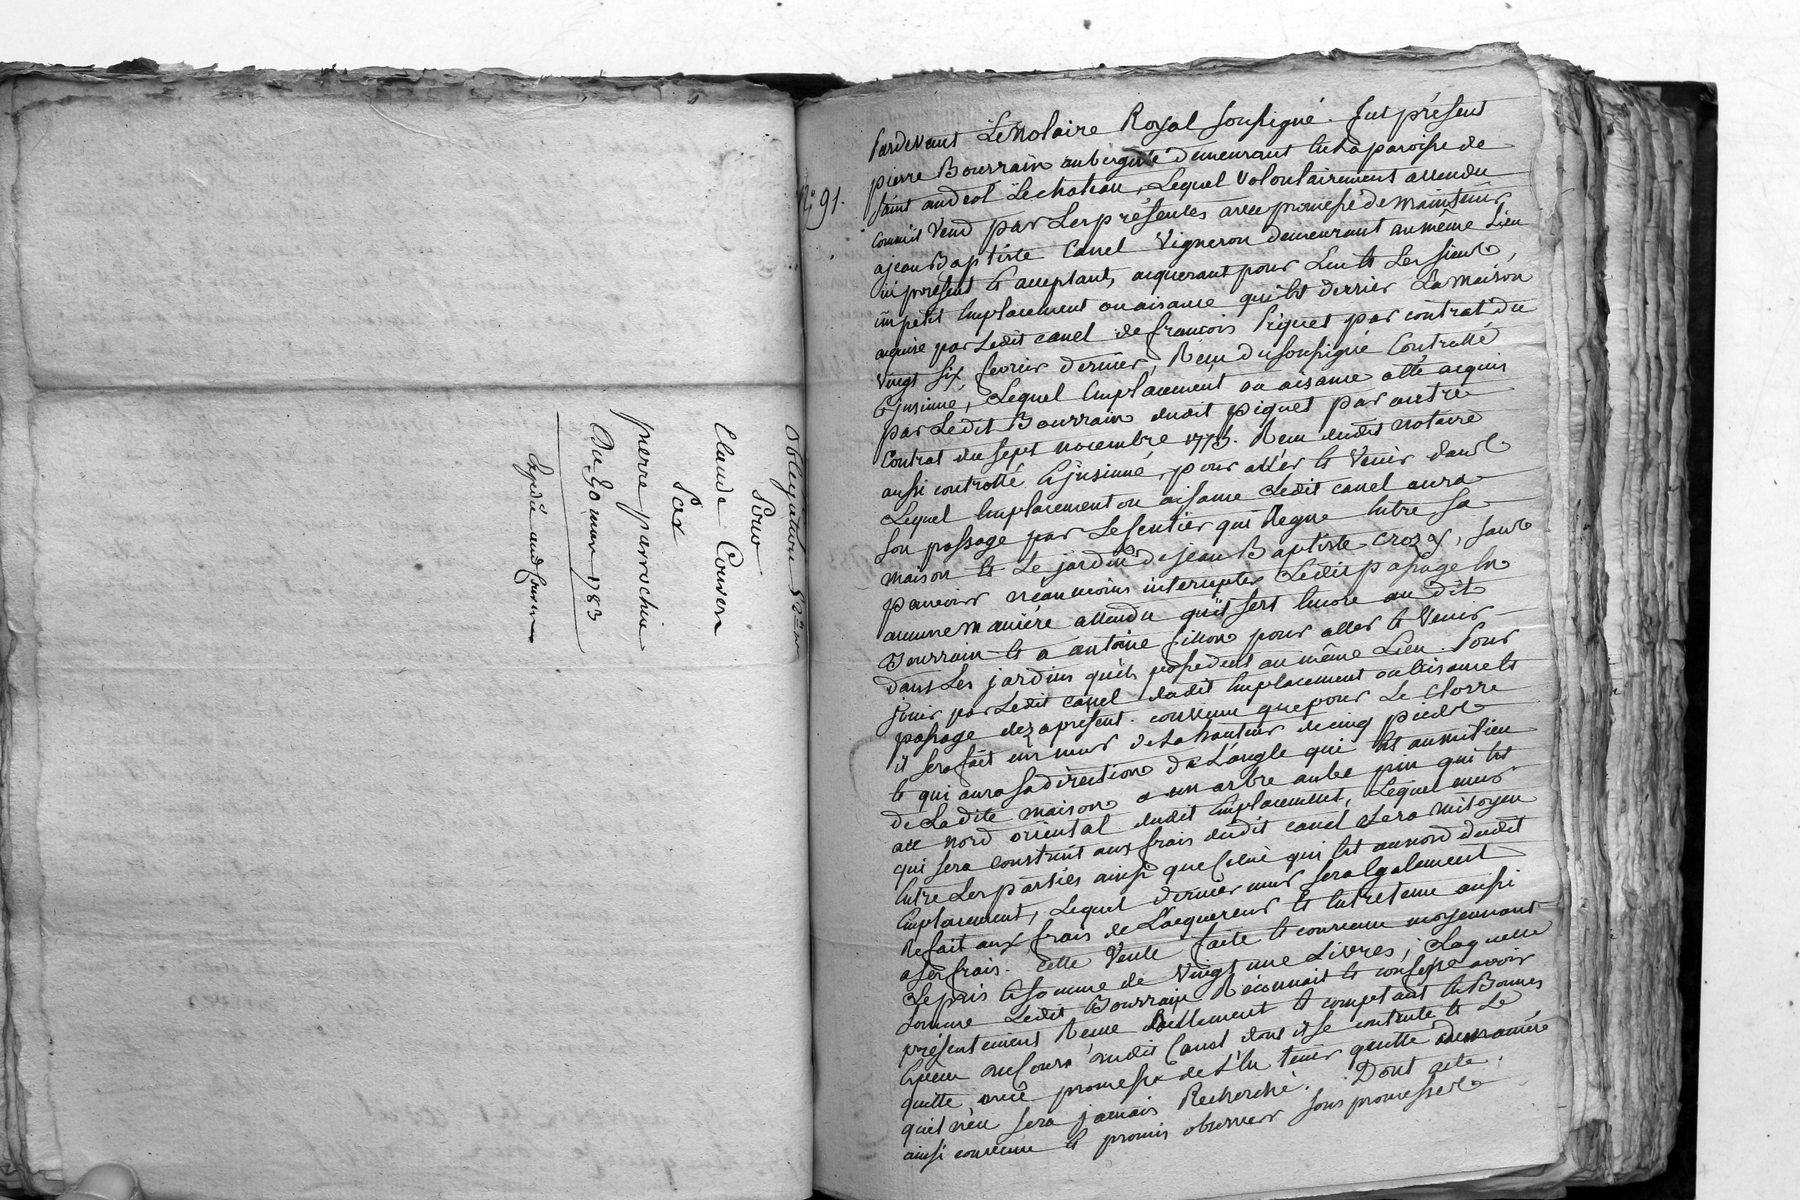 Obligation
Pour
Claude Couvers
Par
pierre parrochia
Du 30 mars 1783
Expedié aud Couvers
N.° 91.
Pardevant Le Notaire Royal soussigné. Fut présent
pierre Bourrain aubergiste demeurant En La paroisse de
saint andeol Le chateau, Lequel volontairement a vendu
comm'il vend par Les présentes avec promesse de maintenir
a jean Baptiste Canel Vigneron demeurant au même Lieu
ici présent Et acceptant, acquerant pour Lui Et Les siens,
un petit Emplacement ou aisance qui Est derrier La maison
acquise par Ledit canel de françois Piquet par contrat du
vingt six fevrier dernier, Recu du soussigné Controllé
Et insinué, Lequel Emplacement ou aisance a été acquis
par Ledit Bourrain dudit piquet par autre
Contrat du sept novembre 1775. Recu dudit notaire
aussi controllé Et insinué, pour aller Et venir dans
Lequel Emplacement ou aisance Ledit canel aura
son passage par Le sentier qui Regne Entre sa
maison Et Le jardin de jean Baptiste crozy, sans
pouvoir neanmoins interrupter Ledit passage En
aucune maniére attendu qu'il sert Encore au dit
Bourrain Et a antoine fillion pour aller Et venir
dans Les jardins qu'ils possedent au même Lieu. Pour
jouir par Ledit canel dudit Emplacement ou aisance Et
passage dez a présent. convenu que pour Le clorre
il sera fait un mur de La hauteur de cinq pieds
Et qui aura sa direction de L'angle qui Est au milieu
de Ladite maison a un arbre aube pin qui Est
au nord oriental dudit Emplacement, Lequel mur
qui sera construit aux frais dudit canel sera mitoyen
Entre Les parties ainsi que celui qui Est au nord dudit
Emplacement, Lequel dernier mur sera Egalement
Refait aux frais de L'acquereur Et Entretenu aussi
a ses frais. cette vente faite Et convenue moyennant
Le prix Et somme de vingt une Livres, Laquelle
somme Ledit Bourrain Reconnait Et confesse avoir
présentement Recue Réellement Et comptant En Bonnes
Especes au Cours dudit Canel dont il se contente Et Le
quitte avec promesse de L'En tenir quitte de maniére
qu'il n'en sera jamais Recherché. Dont acte,
ainsi convenu Et promis observer sous promesses